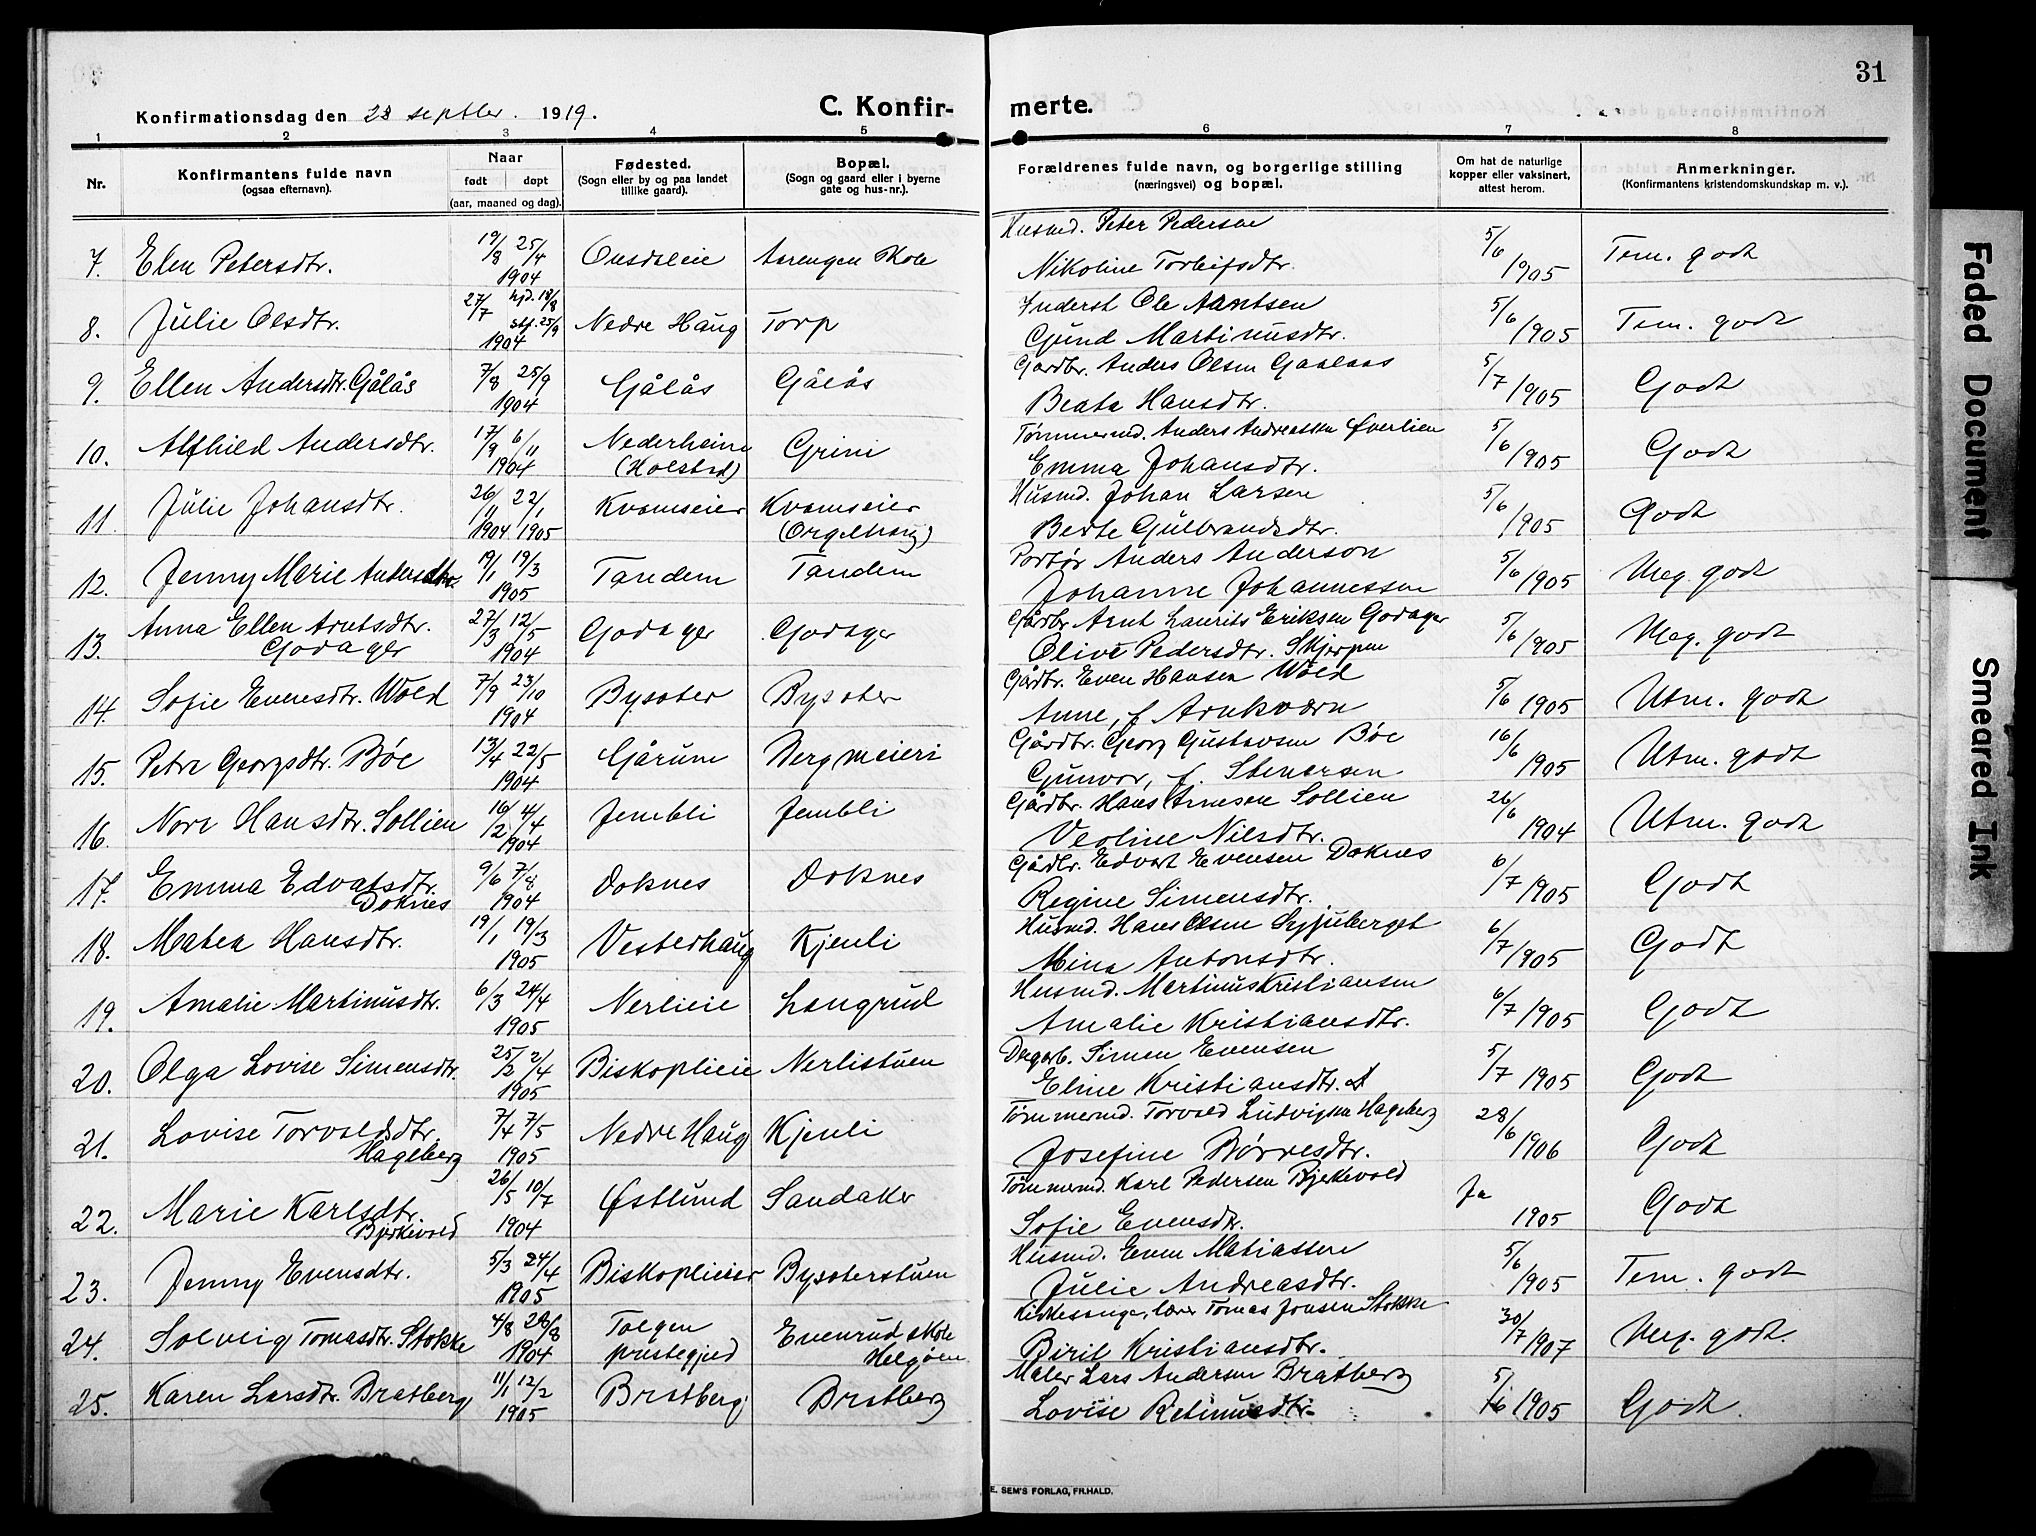 31
Konfirmationsdag den 28 septbr. 1919. C. Konfir- merte.
1 2 3 4 5 6 7 8
Nr.
Konfirmantens fulde navn
(ogsaa efternavn).
Naar
født døpt
(aar, maaned og dag).
Fødested.
(Sogn eller by og paa landet
tillike gaard).
Bopæl.
(Sogn og gaard eller i byerne
gate og hus-nr.).
Forældrenes fulde navn, og borgerlige stilling
(næringsvei) og bopæl.
Om hat de naturlige
kopper eller vaksinert,
attest herom.
Anmerkninger.
(Konfirmantens kristendomskundskap m. v.).
7. Elen Petersdtr. 19/8 25/4 1904 Aarengen Skole Husmd. Peter Pedersen
Nikoline Torleifsdtr. 5/6 1905 Tem. godt
8. Julie Olsdtr. 27/7 hjd. 18/8 stf. 25/9 1904 Nedre Haug Torp Inderst Ole Arntsen
Gund Martinusdtr. 5/6 1905 Tem. godt
9. Ellen Andersdtr. Gålås 7/8 25/9 1904 Gålås Gålås Gardbr. Anders Olsen Gaalaas
Beata Hansdtr. 5/7 1905 Godt
10. Alfhild Andersdtr. 17/9 6/11 1904 Nederheim
(Holstad) Grini Tømmermd. Anders Andreassen Øverlien
Emma Johansdtr. 5/6 1905 Godt
11. Julie Johansdtr. 26/11 1904 22/1 1905 Kvamseier Kvamseier
Husmd. Johan Larsen
Berte Gulbrandsdtr. 5/6 1905 Godt
12. Jenny Marie Andersdtr. 19/1 19/3 1905 Tandem Tandem Portør Anders Anderson
Johanne Johannessen 5/6 1905 Meg. godt
13. Anna Ellen Arntsdtr.
Godager 27/3 12/5 1904 Godager Godager Gårdbr. Arnt Laurits Eriksen Godager
Olive Pedersdtr. Skjerpen 5/6 1905 Meg. godt
14. Sofie Evensdtr. Wold 7/9 23/10 1904 Bysæter Bysæter Gårdbr. Even Hansen Wold
Anne, f. Arnkværn 5/6 1905 Utm. godt
15. Petra Georgsdtr. Bøe 13/4 22/5 1904 Gårum Berg meieri Gårdbr. Georg Gustavsen Bøe
Gunvor, f. Stenersen 16/6 1905 Utm. godt
16. Nora Hansdtr. Sollien 16/2 4/4 1904 Jembli Jembli Gårdbr. Hans Arnesen Sollien
Veoline Nilsdtr. 26/6 1904 Utm. godt
17. Emma Edvatsdtr.
Doknes 9/6 7/8 1904 Doknes Doknes Gådbr. Edvart Evensen Doknes
Regine Simensdtr. 6/7 1905 Godt
18. Matea Hansdtr. 19/1 19/3 1905 Vesterhaug Kjenli Husmd. Hans Olsen
Mina Antonsdtr. 6/7 1905 Godt
19. Amalie Martinusdtr. 6/3 24/4 1905 Nerlieie Langrud Husmd. Martinus Kristiansen
Amalie Kristiansdtr. 6/7 1905 Godt
20. Olga Lovise Simensdtr. 25/2 2/4 1905 Biskoplieie Nerlistuen Dagarb. Simen Evensen
Eline Kristiansdtr. 5/7 1905 Godt
21. Lovise Torvaldsdtr.
Hageberg 7/4 7/5 1905 Nedre Haug Kjenli Tømmermd. Torvald Ludvigsen Hageberg
Josefine Børresdtr. 28/6 1906 Godt
22. Marie Karlsdtr.
Bjerkevold 26/5 10/7 1904 Østlund Sandaker Tømmermd. Karl Pedersen Bjerkevold
Sofie Evensdtr. Ja 1905 Godt
23. Jenny Evensdtr. 5/3 24/4 1905 Biskoplieier Bysæterstuen Husmd. Even Matiassen
Julie Andreasdtr. 5/6 1905 Tem. godt
24. Solveig Tomasdtr. Stokke 4/8 28/8 1904 Tolgen
prestegjeld Evenrud skole
Helgøen Kirkesanger, lærer Tomas Jonsen Stokke
Birit Kristiansdtr. 30/7 1907 Meg. godt.
25. Karen Larsdtr. Bratberg 11/1 12/2 1905 Bratberg Bratberg Maler Lars Andersen Bratberg
Lovise 5/6 1905 Godt.
E. SEM'S FORLAG, FR.HALD.
Faded Document
Smeared Ink